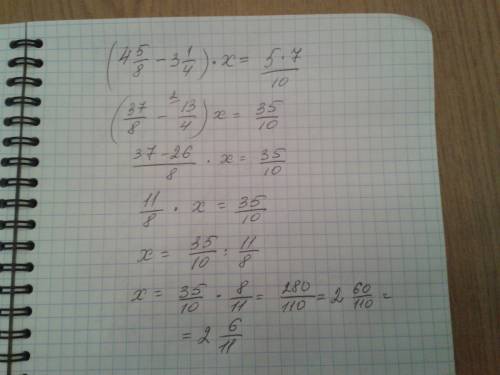 (4 5/8 − 3 1/4) · x = 5·7/10
(37/8 − ²13/4) x = 35/10
37−26/8 · x = 35/10
11/8 · x = 35/10
x = 35/10 : 11/8
x = 35/10 · 8/11 = 280/110 = 2 60/110 =
= 2 6/11